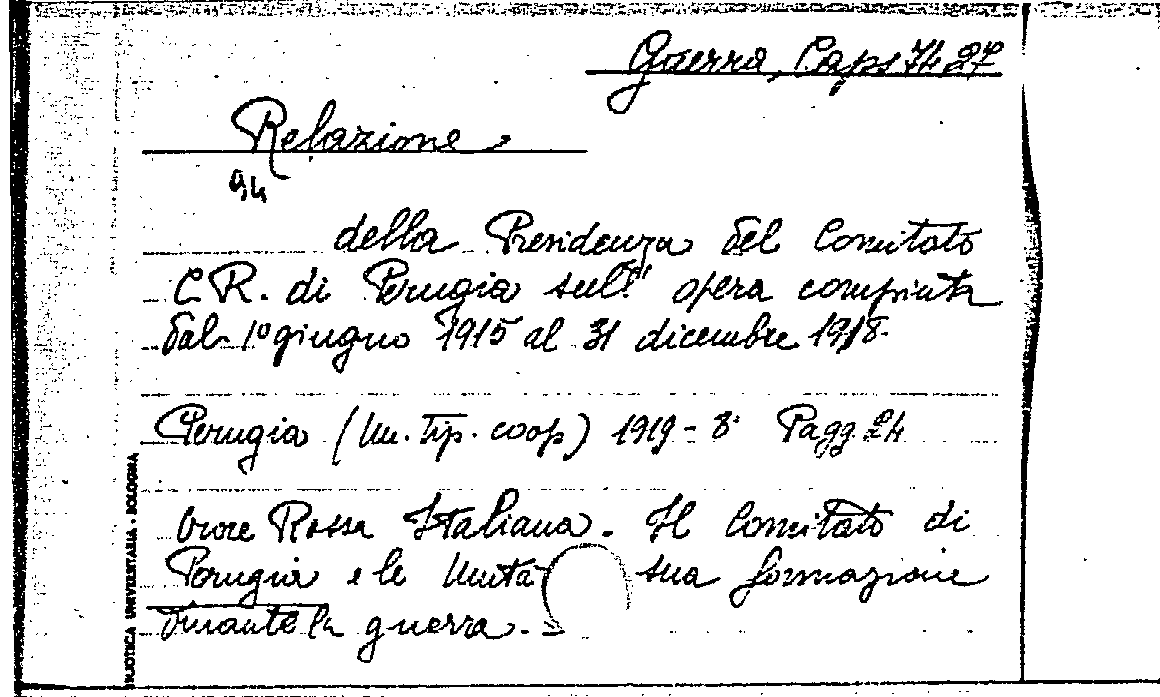 Guerra, Caps 74 27
Relazione
94
della Presidenza del Comitato
C.R. di Perugia sull' opera compiuta
dal 1º giugno 1915 al 31 dicembre 1918.
Perugia (Un. Tip. coop) 1919 - 8º Pagg 24
Croce Rossa Italiana. Il Comitato di
Perugia e le Unità sua formazione
durante la guerra. -
BLIOTECA UNIVERSITARIA - BOLOGNA